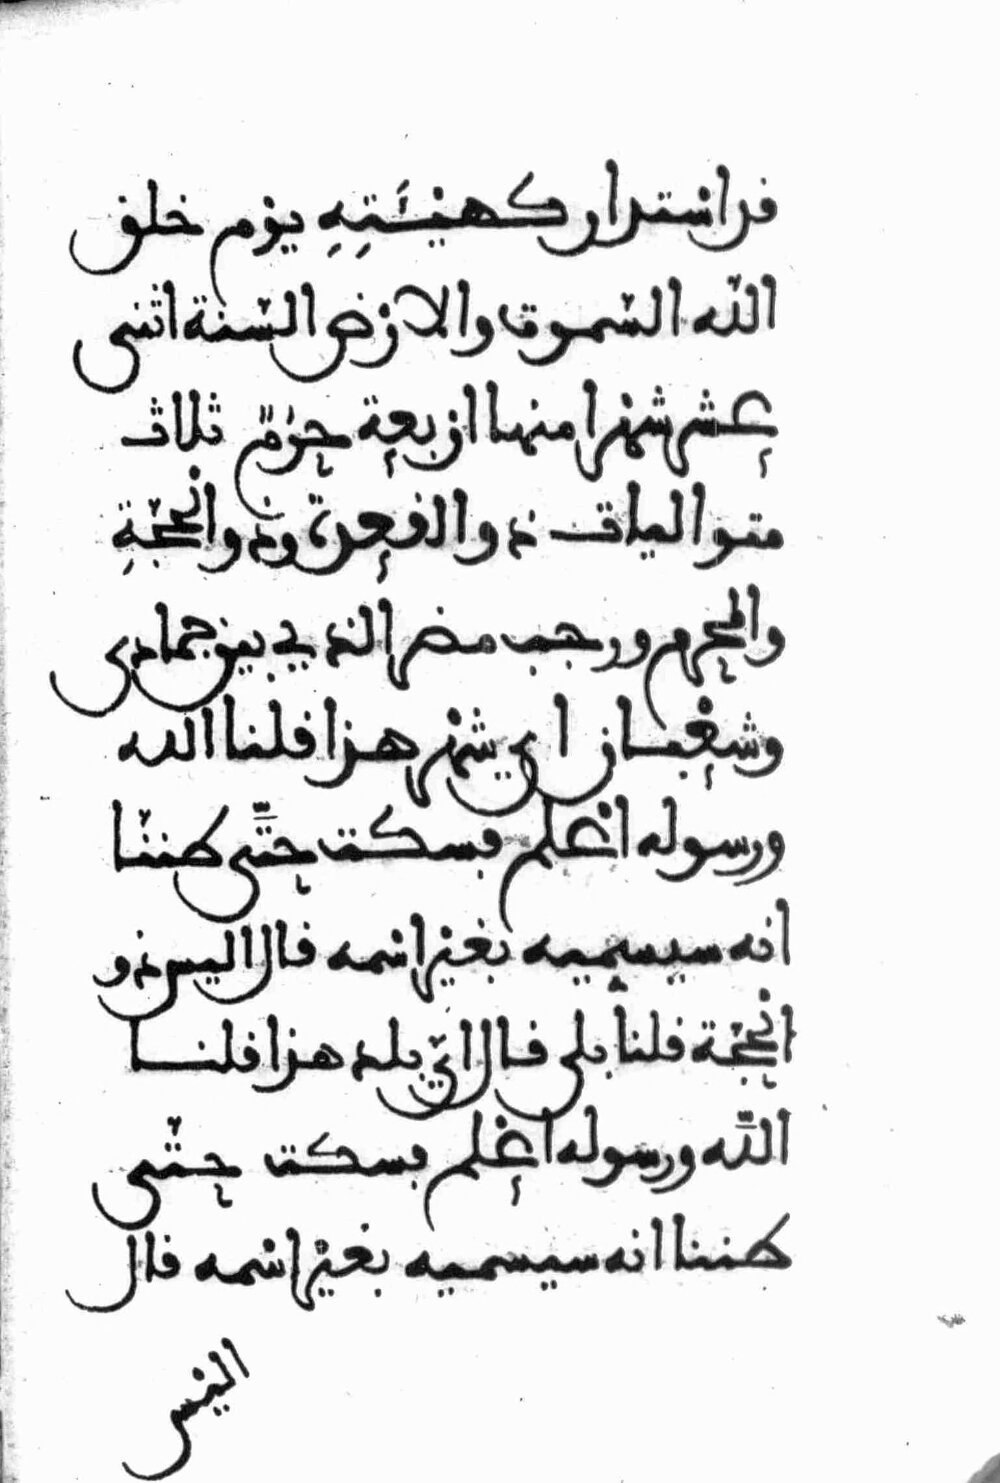 قد استدار كهيئته يوم خلق
الله السموت والارض السنة اثنى
عشر شهرا منها اربعة حرم ثلاث
متواليات ذو القعدة وذو الحجة
والمحرم ورجب مضر الذي بين جمادى
وشعبان اي شهر هذا قلنا الله
ورسوله اعلم فسكت حتى ظننا
انه سيسميه بغير اسمه قال اليس ذو
الحجة قلنا بلى قال اي بلد هذا قلنا
الله ورسوله اعلم فسكت حتى
ظننا انه سيسميه بغير اسمه قال
اليس